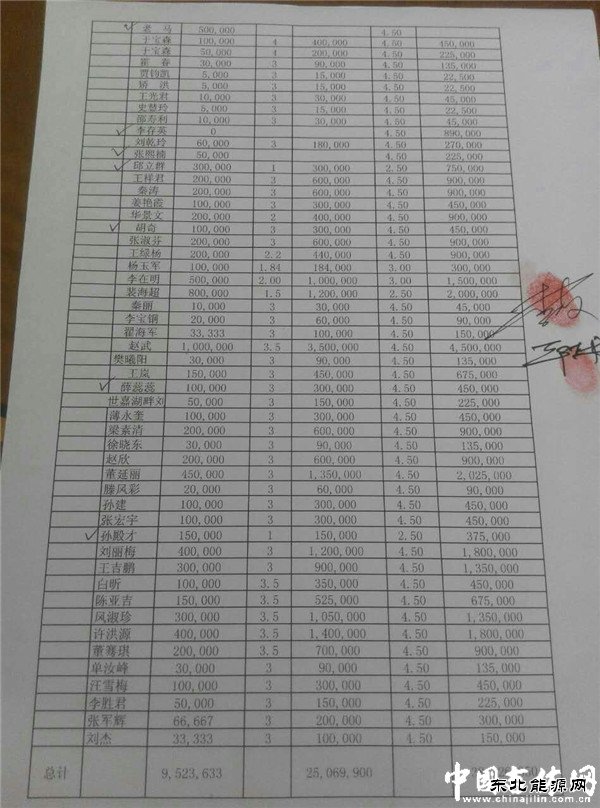 老马 500,000 4.50
于宝森 100,000 4 400,000 4.50 450,000
于宝森 50,000 4 200,000 4.50 225,000
霍春 30,000 3 90,000 4.50 135,000
贾钧凯 5,000 3 15,000 4.50 22,500
矫洪 5,000 3 15,000 4.50 22,500
王光君 10,000 3 30,000 4.50 45,000
史慧玲 5,000 3 15,000 4.50 22,500
邵寿利 10,000 3 30,000 4.50 45,000
李存英 0 4.50 890,000
刘乾玲 60,000 3 180,000 4.50 270,000
张熙楠 50,000 4.50 225,000
邱立群 300,000 1 300,000 2.50 750,000
王梓君 200,000 3 600,000 4.50 900,000
秦涛 200,000 3 600,000 4.50 900,000
姜艳霞 100,000 3 300,000 4.50 450,000
华景文 200,000 2 400,000 4.50 900,000
胡奇 100,000 3 300,000 4.50 450,000
张淑芬 200,000 3 600,000 4.50 900,000
王绿杨 200,000 2.2 440,000 4.50 900,000
杨玉军 100,000 1.84 184,000 3.00 300,000
李在明 500,000 2.00 1,000,000 3.00 1,500,000
裴海超 800,000 1.5 1,200,000 2.50 2,000,000
秦丽 10,000 3 30,000 4.50 45,000
李宝钢 20,000 3 60,000 4.50 90,000
翟海军 33,333 3 100,000 4.50 150,000
赵武 1,000,000 3.5 3,500,000 4.50 4,500,000
樊曦阳 30,000 3 90,000 4.50 135,000
王岚 150,000 3 450,000 4.50 675,000
薛蕊蕊 100,000 3 300,000 4.50 450,000
世嘉湖畔刘 50,000 3 150,000 4.50 225,000
薄永奎 100,000 3 300,000 4.50 450,000
梁素清 200,000 3 600,000 4.50 900,000
徐晓东 30,000 3 90,000 4.50 135,000
赵欣 200,000 3 600,000 4.50 900,000
董延丽 450,000 3 1,350,000 4.50 2,025,000
滕风彩 20,000 3 60,000 4.50 90,000
孙建 100,000 3 300,000 4.50 450,000
张宏宇 100,000 3 300,000 4.50 450,000
孙殿才 150,000 1 150,000 2.50 375,000
刘丽梅 400,000 3 1,200,000 4.50 1,800,000
王吉鹏 300,000 3 900,000 4.50 1,350,000
白昕 100,000 3.5 350,000 4.50 450,000
陈亚吉 150,000 3.5 525,000 4.50 675,000
凤淑珍 300,000 3.5 1,050,000 4.50 1,350,000
许洪源 400,000 3.5 1,400,000 4.50 1,800,000
董骞琪 200,000 3.5 700,000 4.50 900,000
单汝峰 30,000 3 90,000 4.50 135,000
汪雪梅 100,000 3 300,000 4.50 450,000
李胜君 50,000 3 150,000 4.50 225,000
张军辉 66,667 3 200,000 4.50 300,000
刘杰 33,333 3 100,000 4.50 150,000
总计 9,523,633 25,069,900
东北能源网
www.chinajilin.com.cn